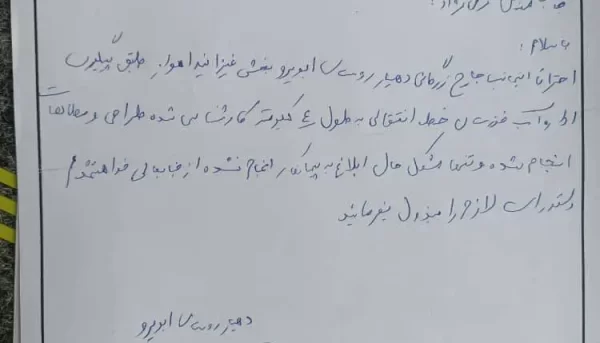 با سلام :
احتراما اینجانب حاج گرگانی دهیار روستای ابوبرو بخشی غیزانیه اهواز طبق
اداره آب خوزستان خط انتقالی به طول ۴ کیلومتر کارشناسی شده طراحی و مطالعات
انجام شده و تنها مشکل مالی ابلاغ به پیمانکار انجام نشده از جنابعالی خواهشمندم
دستورات لازم را مبذول بفرمائید
دهیار روستای ابوبرو